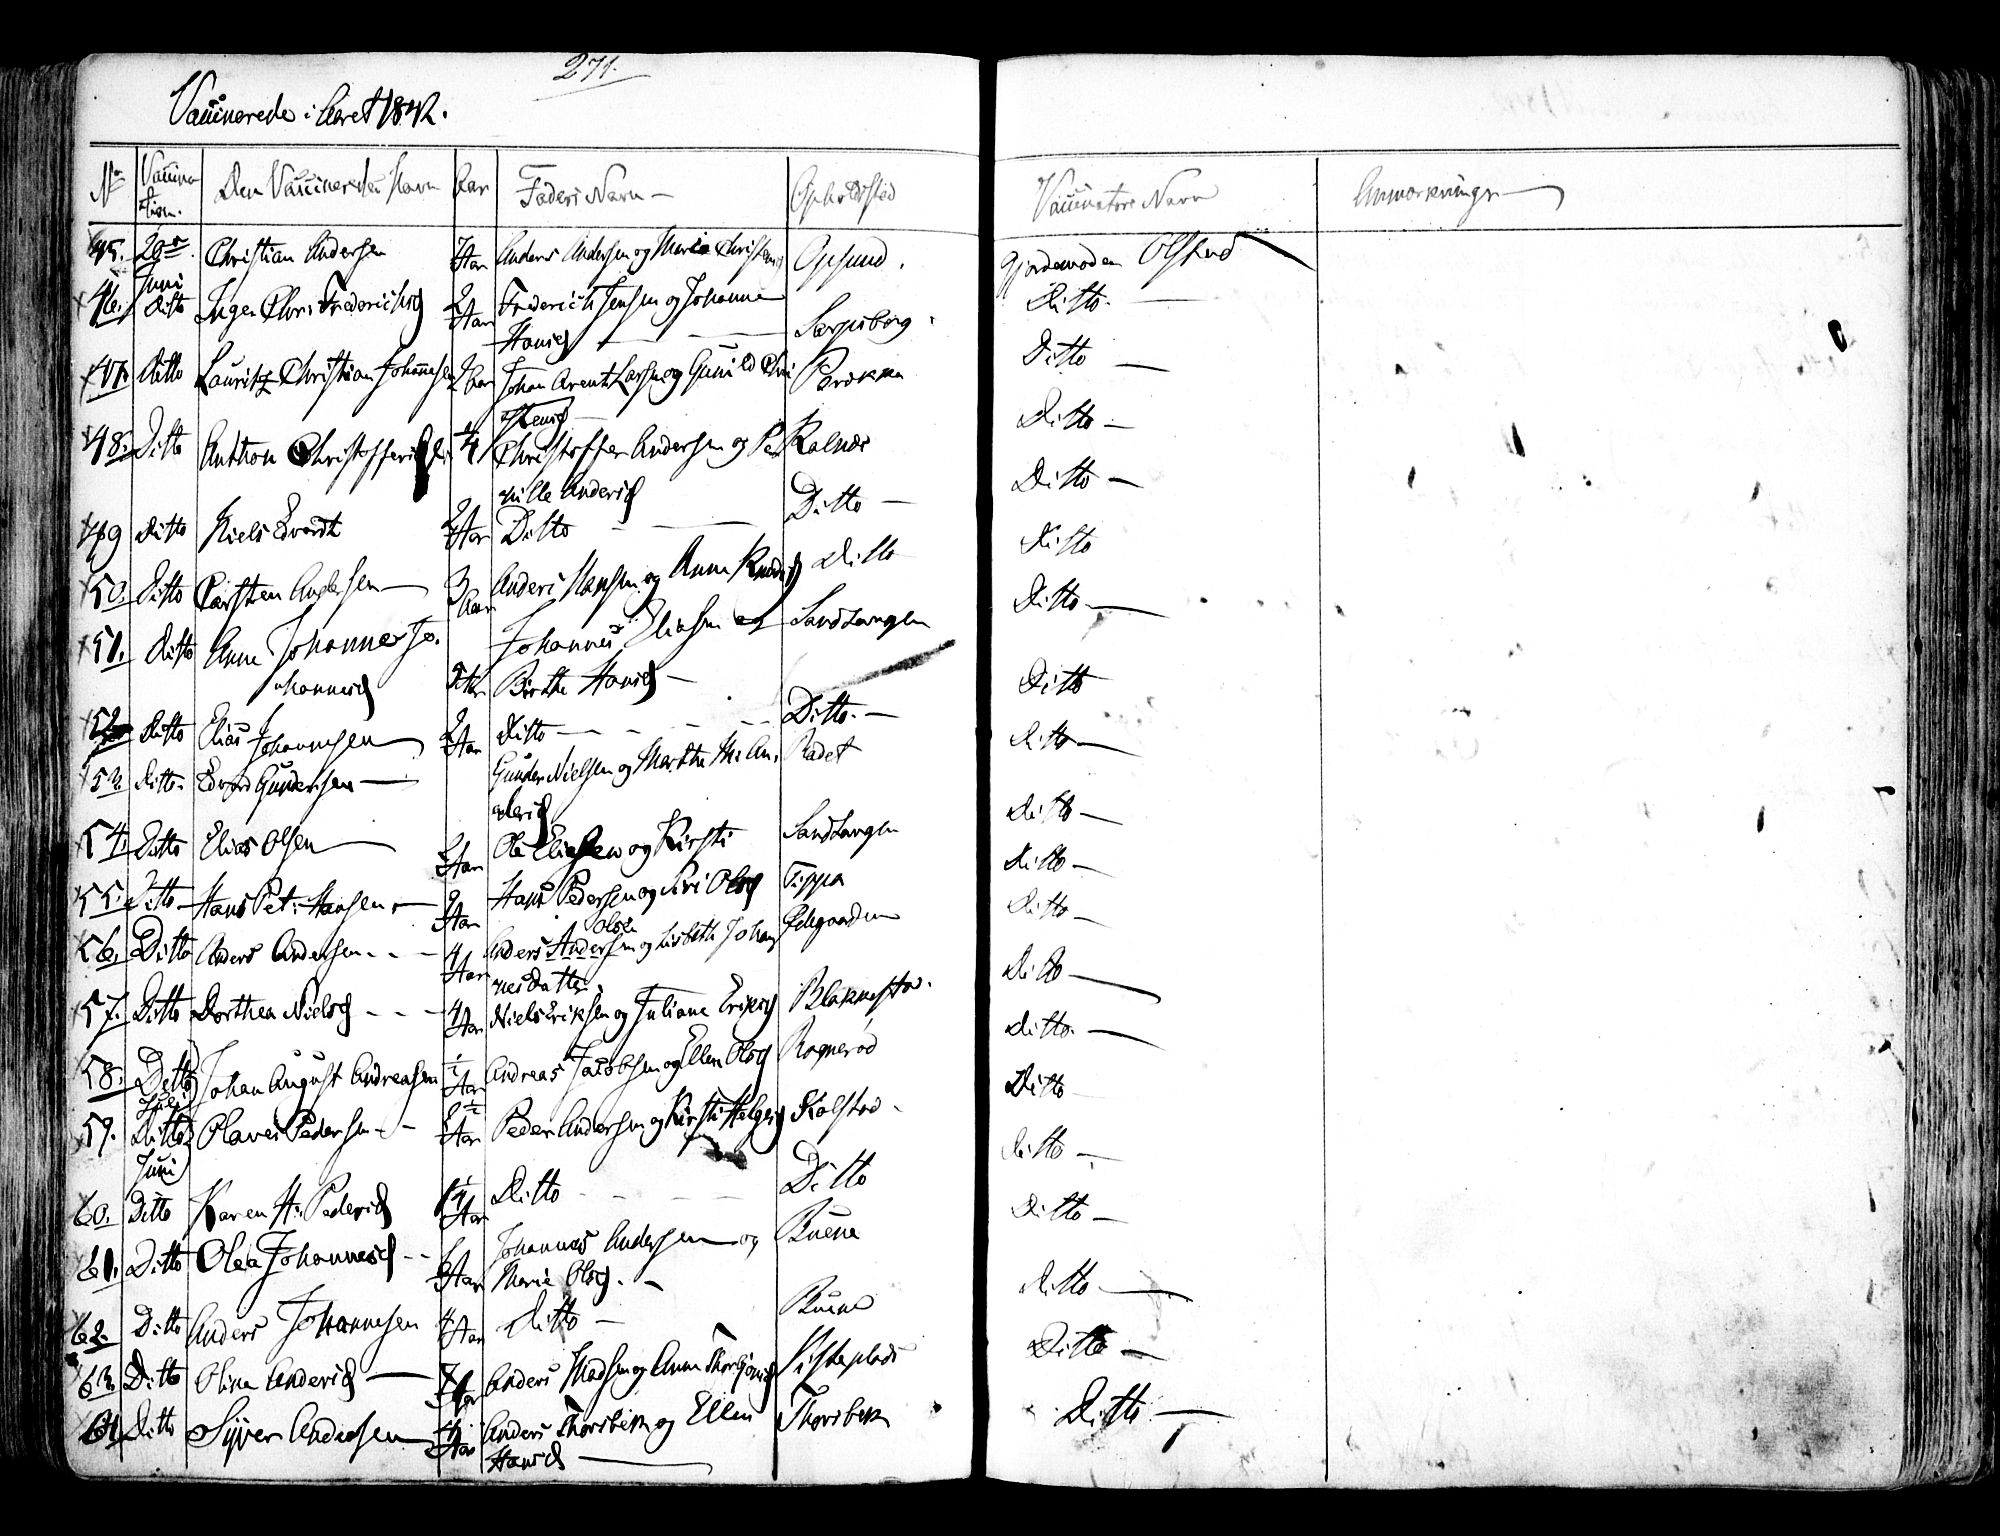 271.
Vaccinerede i Aaret 1842.
No Vaccination. Den Vaccineredes Navn Aar Faders Navn Opholdsted Vaccinators Navn Anmærkninger
45. 20de Juni Christian Andersen Aar Anders Andersen og Maria Christensd Opsund. Gjordemoder Olstad
46. Ditto Inger Chris Frederichsd 2 Aar Frederich Jensen og Johanne Ditto
Hansd Sarpsborg.
47. Ditto Lauritz Christian Johannesen 2 Aar Johan Arent Larsen og Gunild Chri Ditto
stensd
48. Ditto Anthon Christoffersen 1/4 Christoffer Andersen og Per Kalnæs Ditto
nille Andersd
49 Ditto Niels Edvardt 2 Aar Ditto Ditto Ditto
50. Ditto Carsten Andersen 3 Aar Anders Hansen og Anne Knudsd Ditto Ditto
51. Ditto Anne Johanne Jo. Johannes Eliasen og Sandtangen Ditto
hannesd Aar Birthe Hansd
52 Ditto Elias Johannesen 2 Aar Ditto Ditto. Ditto
53. Ditto. Edvard Gundersen Gunder Nielsen og Marthe Ma An. Radet Ditto
dersd
54. Ditto Elias Olsen 2 Aar Ole Eliasen og Kirsti Sandtangen Ditto
55. Ditto Hans Pet: Hansen 2 Aar Hans Pedersen og Siri Olsd Tippa Ditto
Olsen
56. Ditto Anders Andersen 4 Aar Anders Andersen og Lisbeth Johan Ødegaarden Ditto
nesdatter.
57. Ditto Dorthea Nielsd 4 Aar Niels Eriksen og Juliane Eriksd Blakkestad. Ditto
58. Ditto Juli Johan August Andreasen 1/2 Aar Andreas Jacobsen og Ellen Olsd Rognerød Ditto
59. Ditto Juni Olaves Pedersen Aar Peder Andersen og Kirsti Helgesd Kolstad Ditto
60. Ditto Karen H. Pedersd Aar Ditto Ditto Ditto
61. Ditto Olea Johannesd Aar Johannes Andersen og Buene Ditto
Marie Olsd.
62. Ditto Anders Johannesen 4 Aar Ditto Buene Ditto
63. Ditto Oline Andersd Aar Anders Madsen og Anne Thorbjørnsd Ditto
64 Ditto Syver Andersen Aar Anders Thorsbek og Ellen Thorsbek Ditto
Hansd